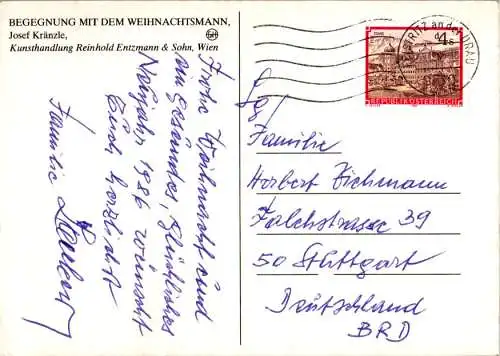 BEGEGNUNG MIT DEM WEIHNACHTSMANN,
Josef Kränzle,
Kunsthandlung Reinhold Entzmann & Sohn, Wien
Frohe Weihnacht und
ein gesundes, glückliches
Neujahr 1986 wünscht
Euch herzlichst
Familie
4 S
STAMS
REPUBLIK ÖSTERREICH
an der DRAU
Fa
Familie
Herbert Eichmann
Falchstrasse 39
50 Stuttgart
Deutschland
BRD